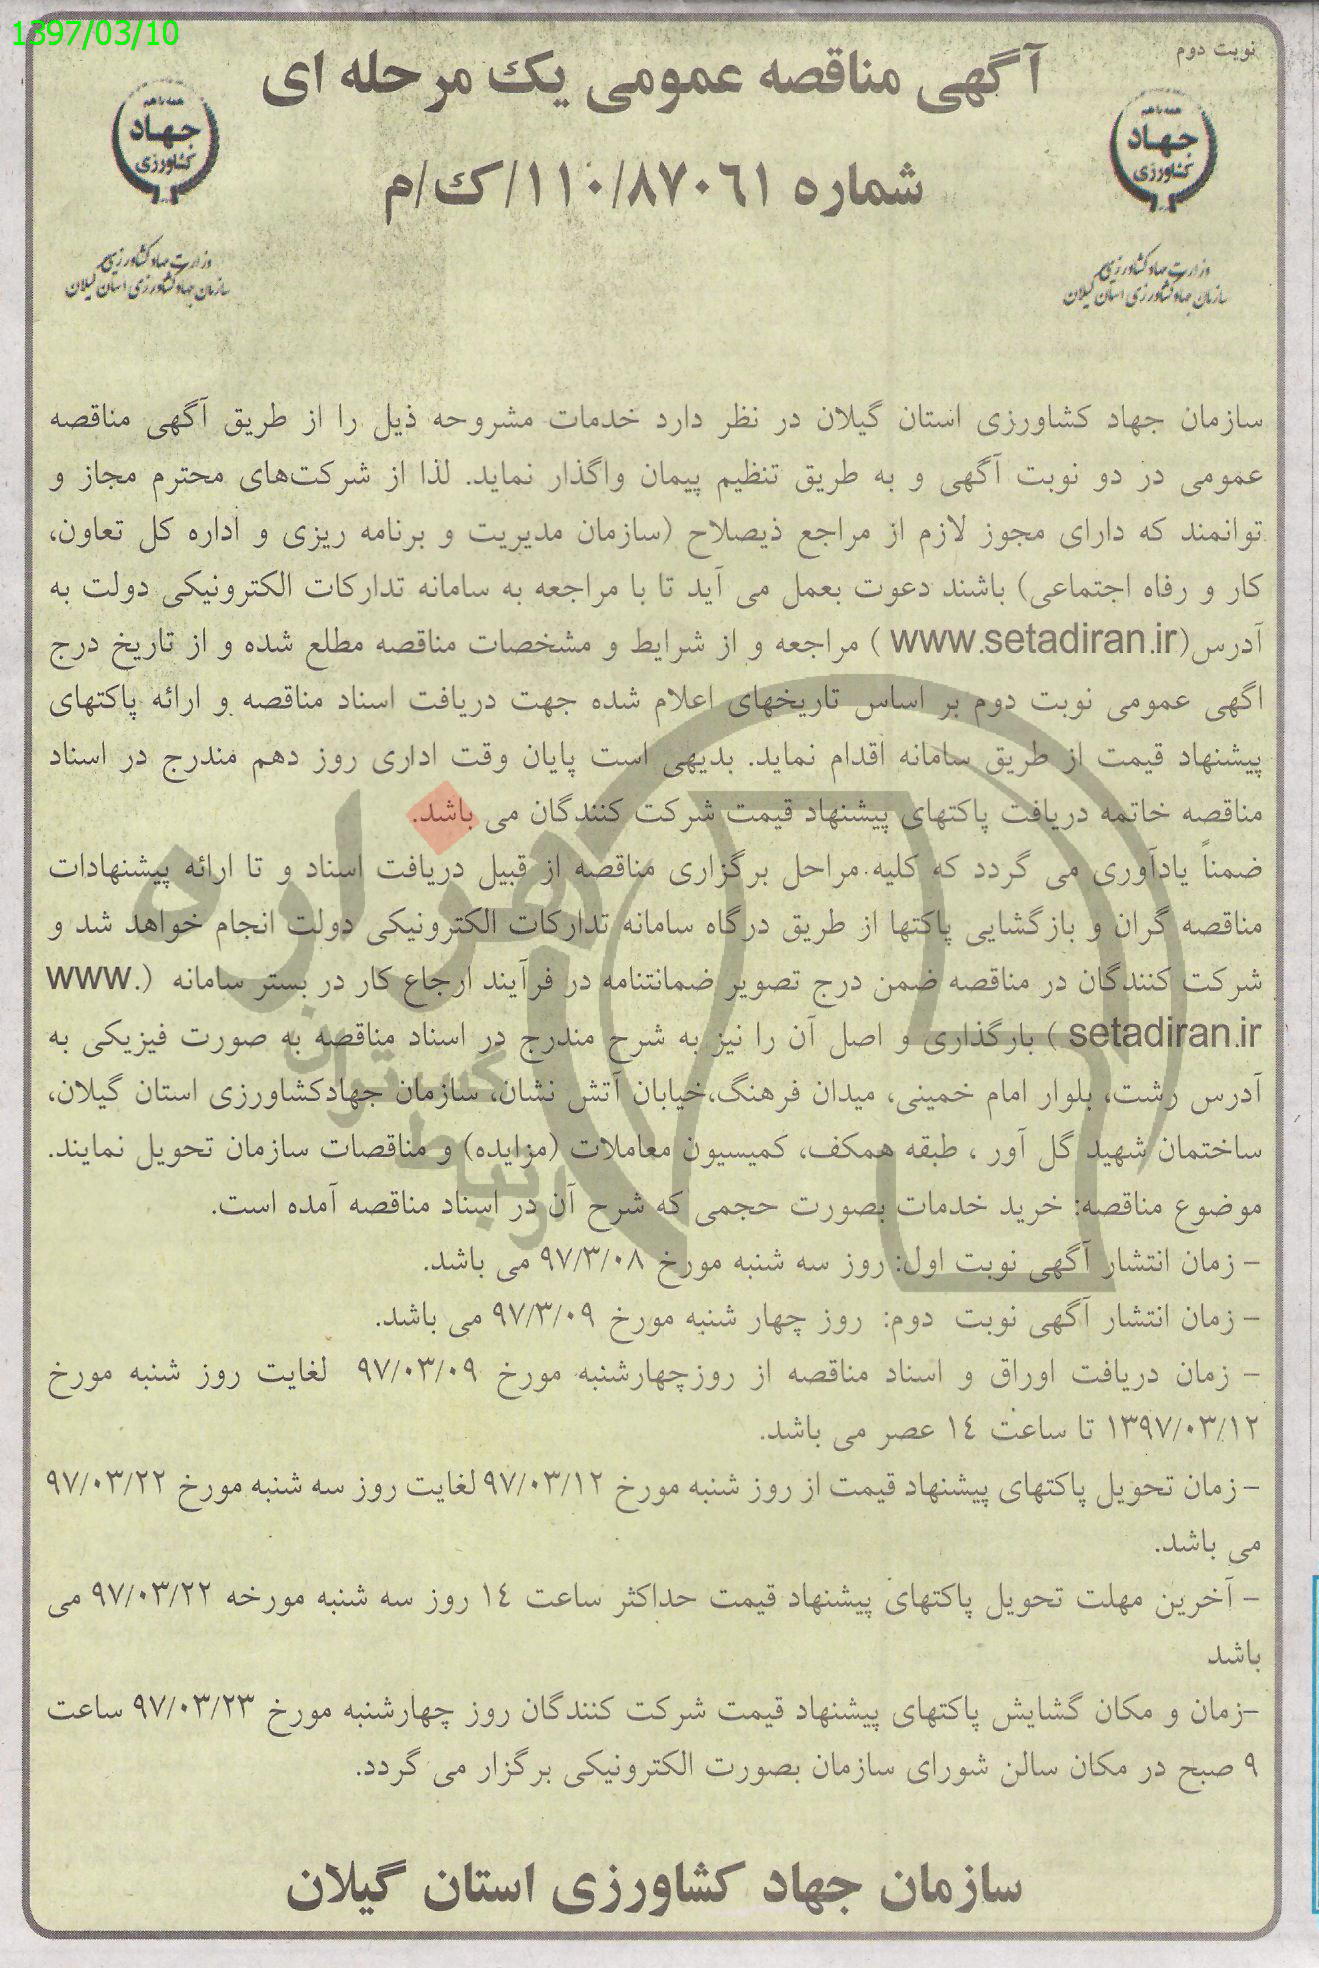 1397/03/10
نوبت دوم
آگهی مناقصه عمومی یک مرحله ای
شماره ۱۱۰/۸۷۰۶۱/ک/م
همه با هم
جهاد
کشاورزی
وزارت جهاد کشاورزی
سازمان جهاد کشاورزی استان گیلان
همه با هم
جهاد
کشاورزی
وزارت جهاد کشاورزی
سازمان جهاد کشاورزی استان گیلان
سازمان جهاد کشاورزی استان گیلان در نظر دارد خدمات مشروحه ذیل را از طریق آگهی مناقصه
عمومی در دو نوبت آگهی و به طریق تنظیم پیمان واگذار نماید. لذا از شرکت‌های محترم مجاز و
توانمند که دارای مجوز لازم از مراجع ذیصلاح (سازمان مدیریت و برنامه ریزی و اداره کل تعاون،
کار و رفاه اجتماعی) باشند دعوت بعمل می آید تا با مراجعه به سامانه تدارکات الکترونیکی دولت به
آدرس(www.setadiran.ir ) مراجعه و از شرایط و مشخصات مناقصه مطلع شده و از تاریخ درج
اگهی عمومی نوبت دوم بر اساس تاریخهای اعلام شده جهت دریافت اسناد مناقصه و ارائه پاکتهای
پیشنهاد قیمت از طریق سامانه اقدام نماید. بدیهی است پایان وقت اداری روز دهم مندرج در اسناد
مناقصه خاتمه دریافت پاکتهای پیشنهاد قیمت شرکت کنندگان می باشد.
ضمناً یادآوری می گردد که کلیه مراحل برگزاری مناقصه از قبیل دریافت اسناد و تا ارائه پیشنهادات
مناقصه گران و بازگشایی پاکتها از طریق درگاه سامانه تدارکات الکترونیکی دولت انجام خواهد شد و
شرکت کنندگان در مناقصه ضمن درج تصویر ضمانتنامه در فرآیند ارجاع کار در بستر سامانه (www.
setadiran.ir ) بارگذاری و اصل آن را نیز به شرح مندرج در اسناد مناقصه به صورت فیزیکی به
آدرس رشت، بلوار امام خمینی، میدان فرهنگ،خیابان آتش نشان، سازمان جهادکشاورزی استان گیلان،
ساختمان شهید گل آور ، طبقه همکف، کمیسیون معاملات (مزایده) و مناقصات سازمان تحویل نمایند.
موضوع مناقصه: خرید خدمات بصورت حجمی که شرح آن در اسناد مناقصه آمده است.
- زمان انتشار آگهی نوبت اول: روز سه شنبه مورخ ۹۷/۳/۰۸ می باشد.
- زمان انتشار آگهی نوبت دوم: روز چهار شنبه مورخ ۹۷/۳/۰۹ می باشد.
- زمان دریافت اوراق و اسناد مناقصه از روزچهارشنبه مورخ ۹۷/۰۳/۰۹ لغایت روز شنبه مورخ
۱۳۹۷/۰۳/۱۲ تا ساعت ۱۴ عصر می باشد.
- زمان تحویل پاکتهای پیشنهاد قیمت از روز شنبه مورخ ۹۷/۰۳/۱۲ لغایت روز سه شنبه مورخ ۹۷/۰۳/۲۲
می باشد.
- آخرین مهلت تحویل پاکتهای پیشنهاد قیمت حداکثر ساعت ۱۴ روز سه شنبه مورخه ۹۷/۰۳/۲۲ می
باشد
-زمان و مکان گشایش پاکتهای پیشنهاد قیمت شرکت کنندگان روز چهارشنبه مورخ ۹۷/۰۳/۲۳ ساعت
۹ صبح در مکان سالن شورای سازمان بصورت الکترونیکی برگزار می گردد.
سازمان جهاد کشاورزی استان گیلان